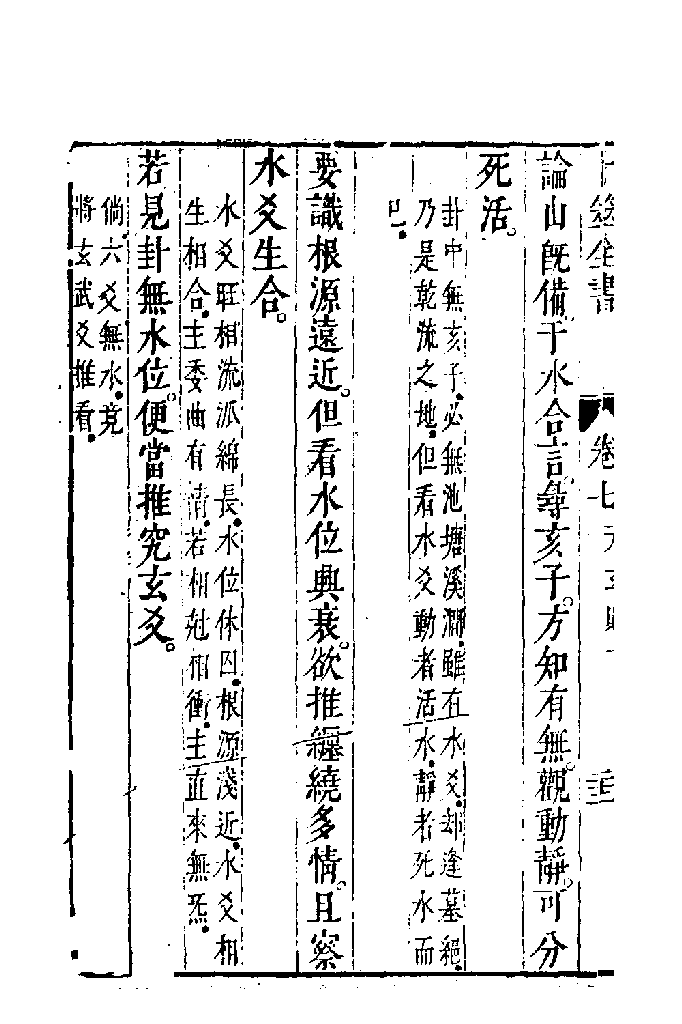 卜筮全書
卷七
論山既備。于水合言。尋亥子。方知有無。觀動靜。可分
死活。
卦中無亥子。必無池塘溪澗。雖有水爻。却逢墓絕。
乃是乾流之地。但看水爻動者活水。靜者死水而
巳。
要識根源遠近。但看水位興衰。欲推纏繞多情。且察
水爻生合。
水爻旺相。流派綿長。水位休囚。根源淺近。水爻相
生相合。主委曲有情。若相尅相衝。主直來無炁。
若見卦無水位。便當推究玄爻。
倘六爻無水。竟
將玄武爻推看。